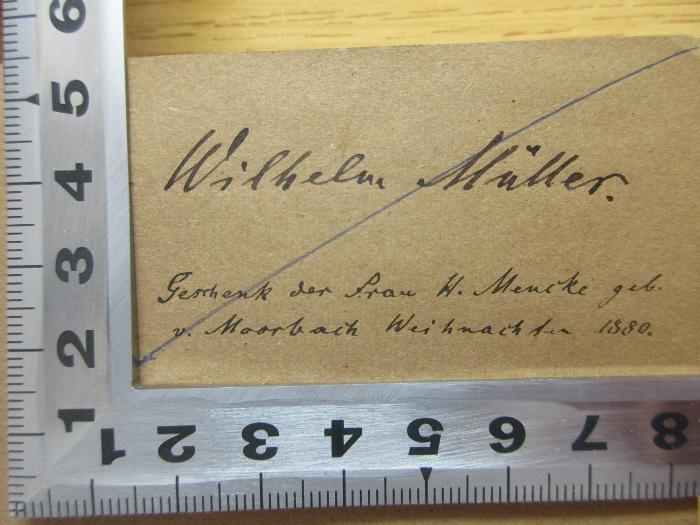 Wilhelm Müller.
Geschenk der Frau H. Mencke geb.
v. Moorbach Weihnachten 1880.
6
5
4
3
2
1
1 2 3 4 5 6 7 8